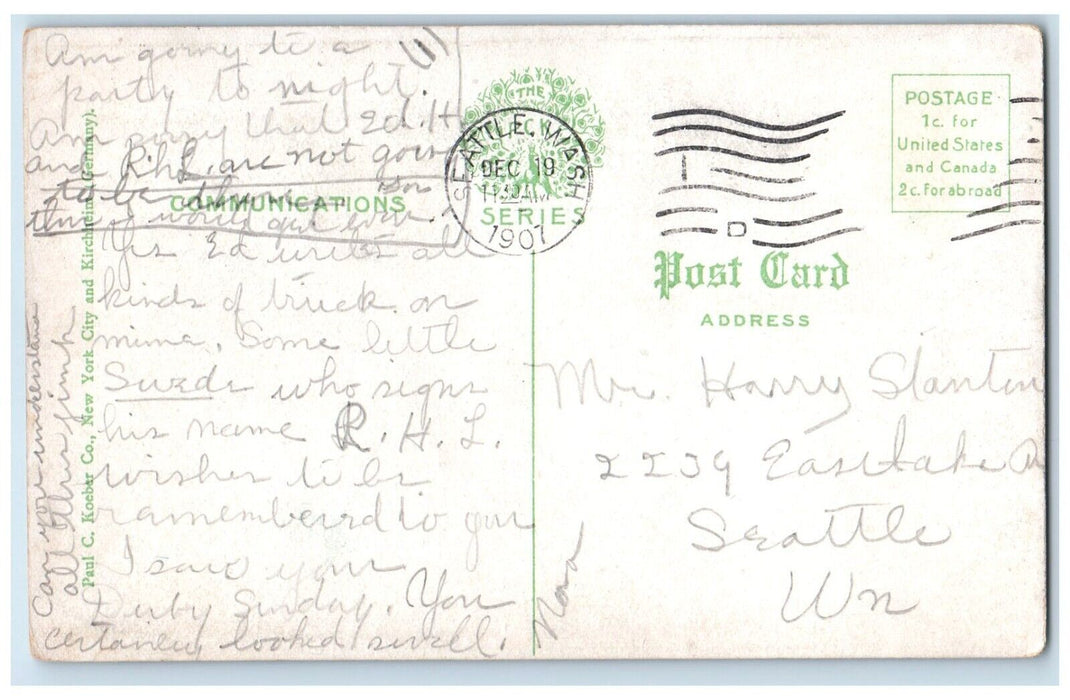 Am going to a
party to night. (1)
Am sorry that Ed. H.
and R.h.L. are not going
to be there on
this I would get even.
COMMUNICATIONS
Yes Ed writes all
kinds of truck on
mine. Some little
Swede who signs
his name R. H. L.
wishes to be
remembered to you
I saw your
Derby Sunday. You
certainly looked swell.
Nora
Can you understand
all this junk
Paul C. Koeber Co., New York City and Kirchheim (Germany).
THE
P.C.K.
SERIES
SEATTLE, WASH
DEC 19
11 30 AM
1907
D
POSTAGE
1c. for
United States
and Canada
2c. for abroad
Post Card
ADDRESS
Mr. Harry Stanton
2239 Eastlake A
Seattle
Wn